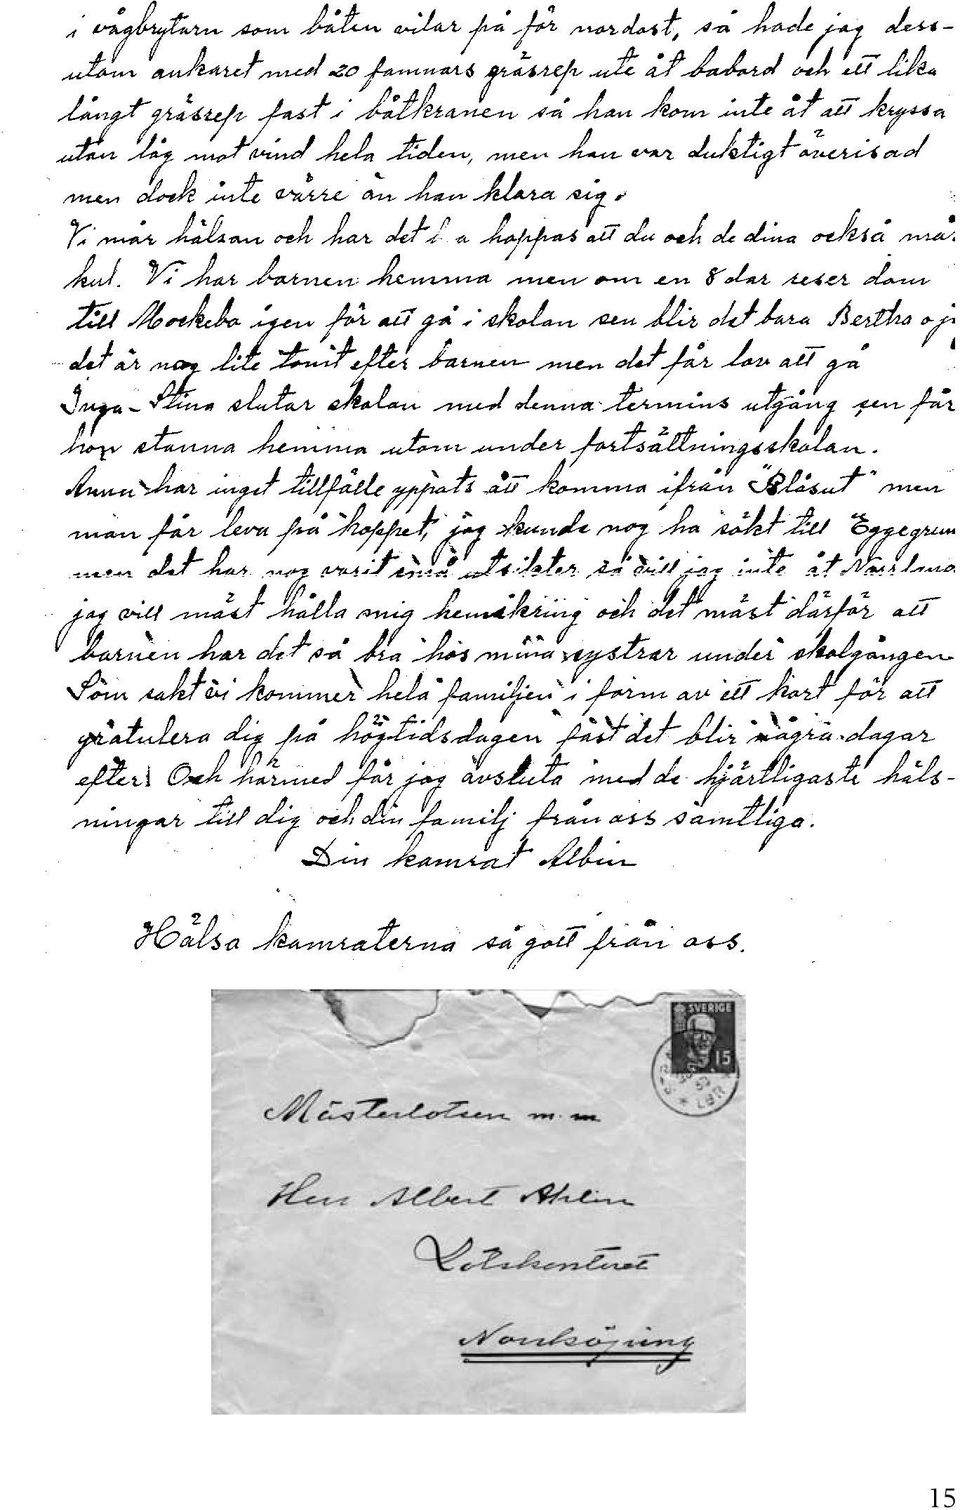 i vågbrytarn som båten vilar på för nordost, så hade jag dess-
utom ankaret med 20 famnars gräsrep ute åt babord och ett lika
långt gräsrep fast i båtkranen så han kom inte åt att kryssa
utan låg mot vind hela tiden, men han var duktigt överisad
men dock inte värre än han klara sig.
Vi mår hälsan och har det bra hoppas att du och de dina också må
kul. Vi har barnen hemma men om en 8 dar reser dom
till Mockebo igen för att gå i skolan sen blir det bara Bertha o j
det är nog lite tomt efter barnen men det får lov att gå
Inga-Stina slutar skolan med denna termins utgång sen får
hon stanna hemma utom under fortsättningsskolan.
Anna har inget tillfälle yppats att komma ifrån "Blåsut" men
man får leva på hoppet, jag kunde nog ha sökt till Eggegrun
men det har nog varit små utsikter så vill jag inte åt
jag vill mäst hålla mig hemåkring och det mäst därför att
barnen har det så bra hos mina systrar under skolgången
Som sakt vi kommer hela familjen i form av ett kort för att
gratulera dig på högtidsdagen fast det blir några dagar
efter! Och härmed får jag avsluta med de hjärtligaste häls-
ningar till dig och din familj från oss samtliga.
Din kamrat Albin
Hälsa kamraterna så gott från oss.
SVERIGE
15
Mästerlotsen m.m.
Herr Albert Ahlin
Lotskontoret
Norrköping
15